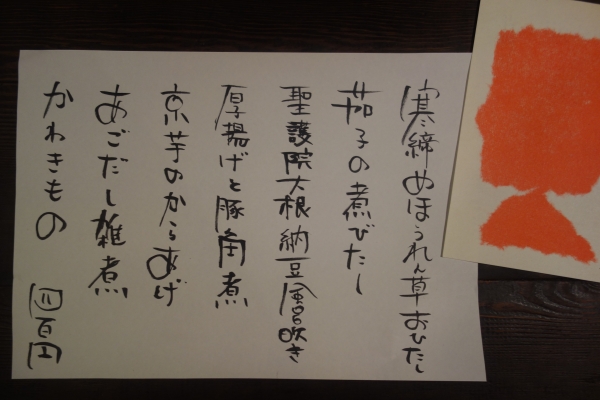 寒締めほうれん草おひたし
茄子の煮びたし
聖護院大根納豆風呂吹き
厚揚げと豚角煮
京芋のからあげ
あごだし雑煮
かわきもの 四百円